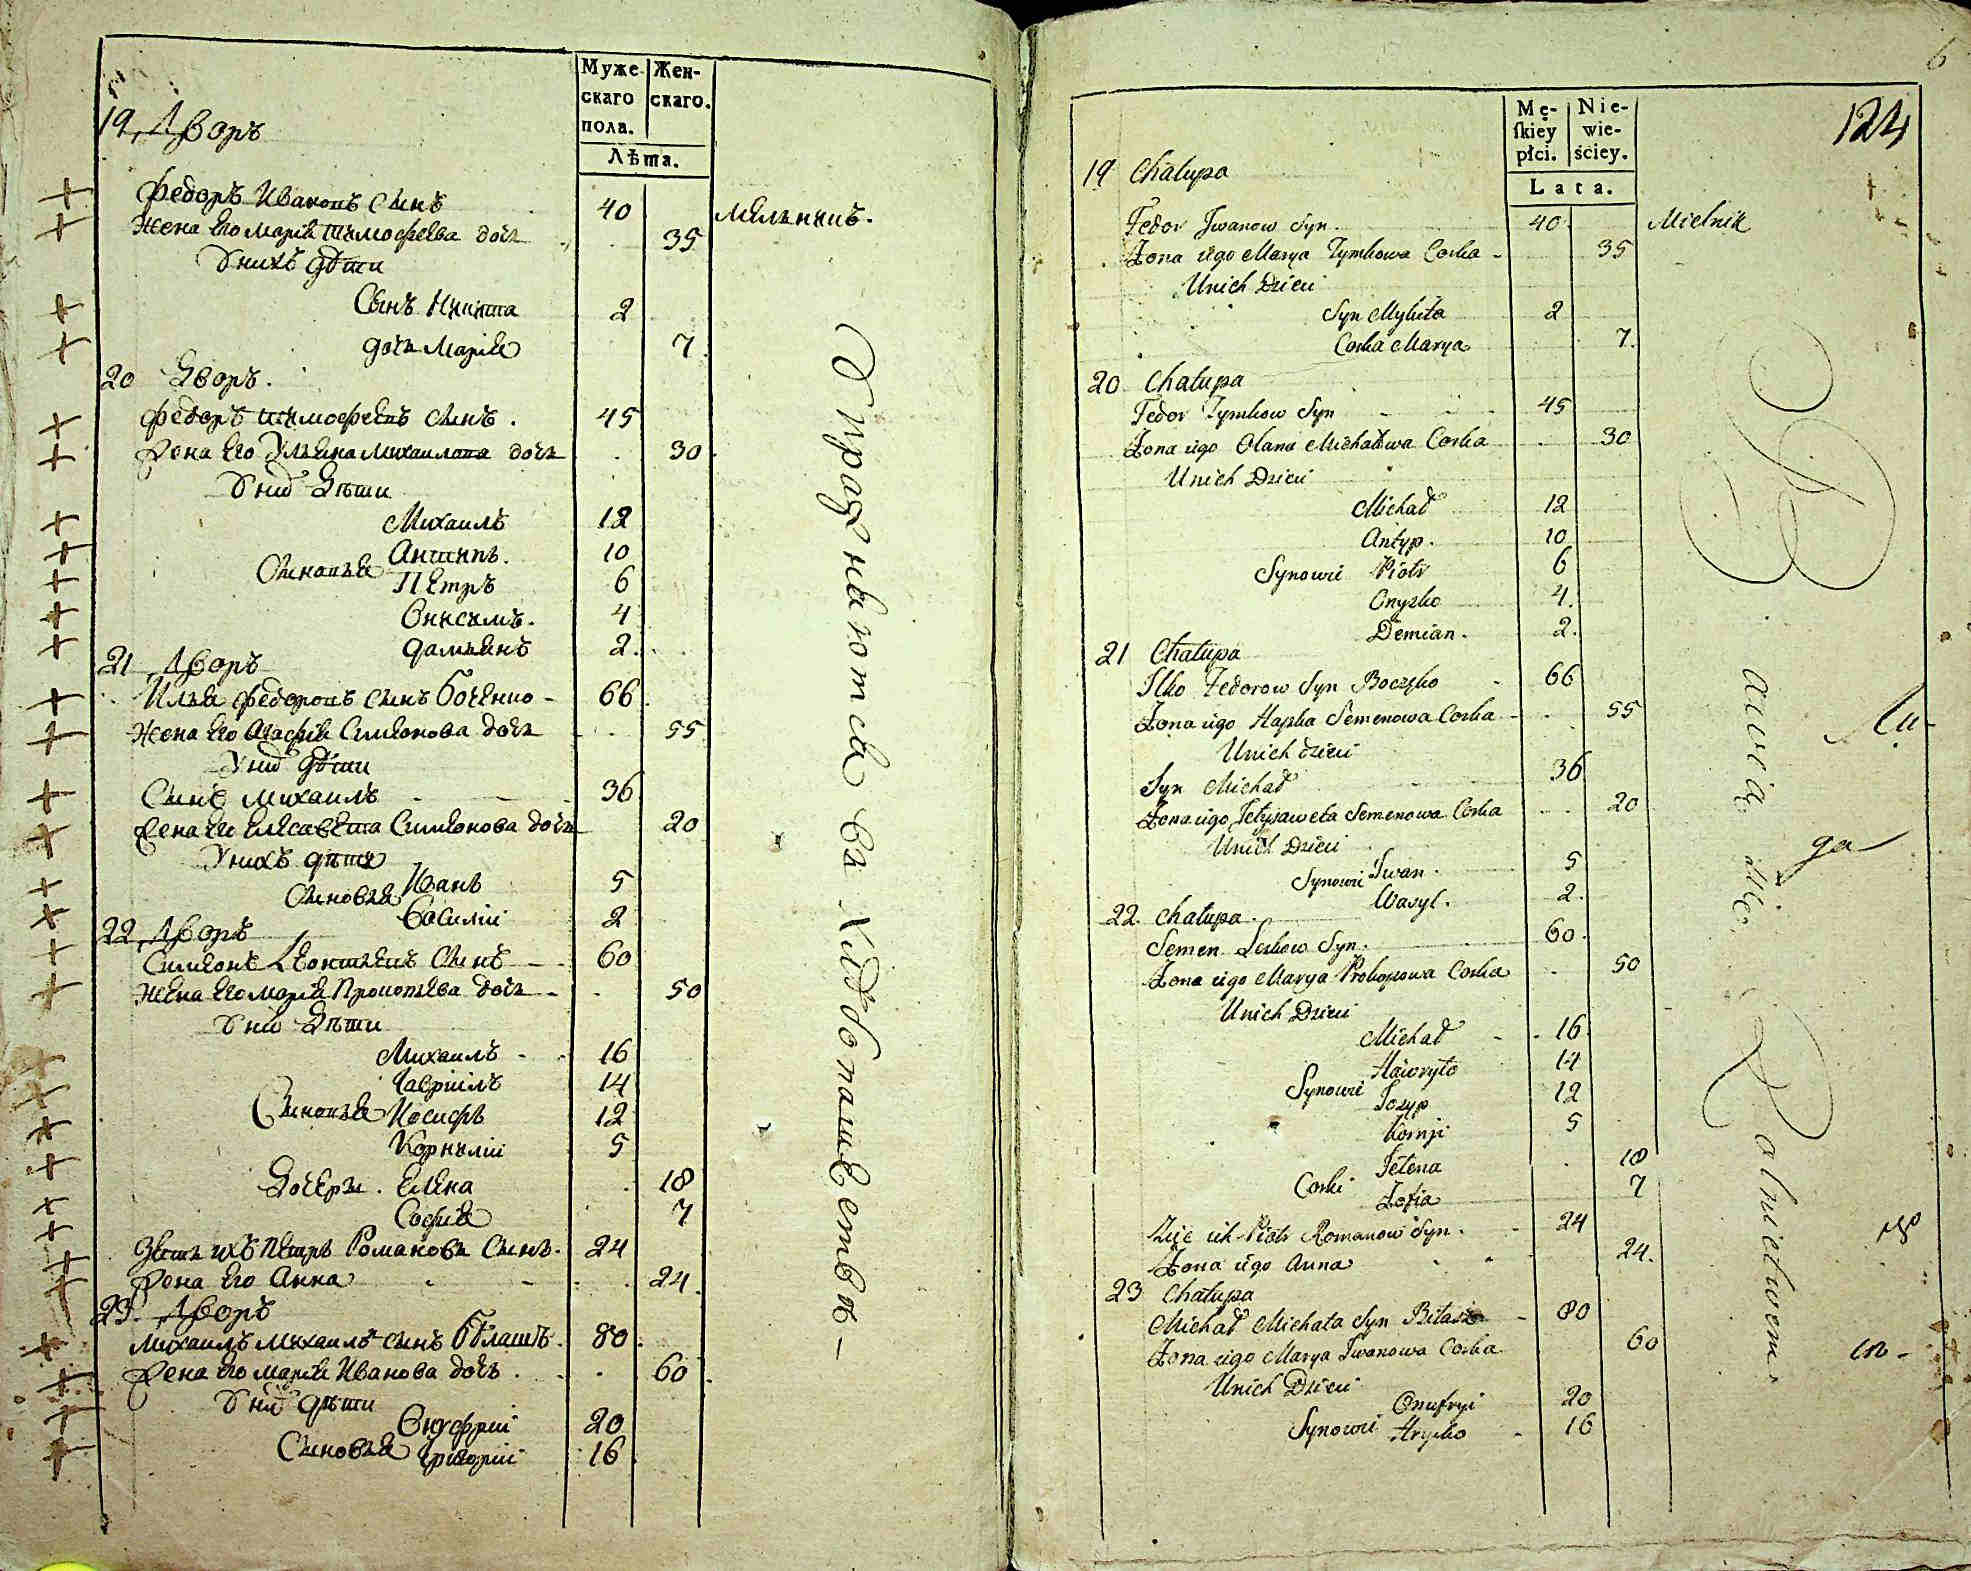 Муже-
скаго
пола.
Жен-
скаго.
Лѣта.
19 Дворъ
Федоръ Ивановъ сынъ 40 Мельникъ.
Жена его Марія Тимофеева дочь 35
У нихъ дѣти
Сынъ Никита 2
дочь Марія 7
20 Дворъ.
Федоръ Тимофеевъ сынъ. 45
Жена его Ульяна Михаилова дочь 30
У них дѣти
Михаилъ 12
Антипъ. 10
Сыновья Петръ 6
Онисимъ. 4
Дамьянъ 2
21 Дворъ
Илья Федоровъ сынъ Боченко 66
Жена его Агафія Симионова дочь 55
У них дѣти
Сынъ Михаилъ 36
Жена его Елисавета Симионова дочь 20
У нихъ дѣти
Сыновья Иванъ 5
Василій 2
22 Дворъ
Симионъ Леонтьевъ сынъ 60
Жена его Марія Прокопьева дочь 50
У них дѣти
Михаилъ 16
Гавріилъ 14
Сыновья Иосифъ 12
Корнилій 5
Дочери. Елена 18
Софія 7
Зять ихъ Петръ Романовъ сынъ. 24
Жена его Анна 24
23 Дворъ
Михаилъ Михаилъ сынъ Бѣлашъ. 80
Жена его Марія Иванова дочь. 60
У них дѣти
Онуфрій 20
Сыновья Григорій 16
Упражняются въ Хлѣбопашествѣ
6
124
Mę-
ſkiey
płci.
Nie-
wie-
ściey.
Lata.
19 Chałupa
Fedor Jwanow Syn 40 Mielnik
Żona iego Marya Tymkowa Corka 35
Unich Dzieci
Syn Mykita 2
Corka Marya 7.
20 Chałupa
Fedor Tymkow Syn 45
Żona iego Olana Michałowa Corka 30
Unich Dzieci
Michał 12
Antyp. 10
Synowie Piotr 6
Onyzko 4.
Demian. 2.
21 Chałupa
Ilko Fedorow Syn Boczko 66
Żona iego Hapka Semenowa Corka 55
Unich dzieci
Syn Michał 36
Żona iego Jełysaweta Semenowa Corka 20
Unich Dzieci
Synowie Iwan. 5
Wasyl. 2.
22. Chałupa.
Semen Leskow Syn. 60.
Żona iego Marya Prokopowa Corka 50
Unich Dzieci
Michał 16
Hawryło 14
Synowie Jozyp 12
Kornji 5
Jełena 18
Corki Zofia 7
Zięć ich Piotr Romanow Syn. 24
Żona iego Anna 24.
23 Chałupa
Michał Michała Syn Biłasz 80
Żona iego Marya Jwanowa Corka 60
Unich Dzieci
Onufryi 20
Synowie Hryćko 16
Bawią się Rolnictwem